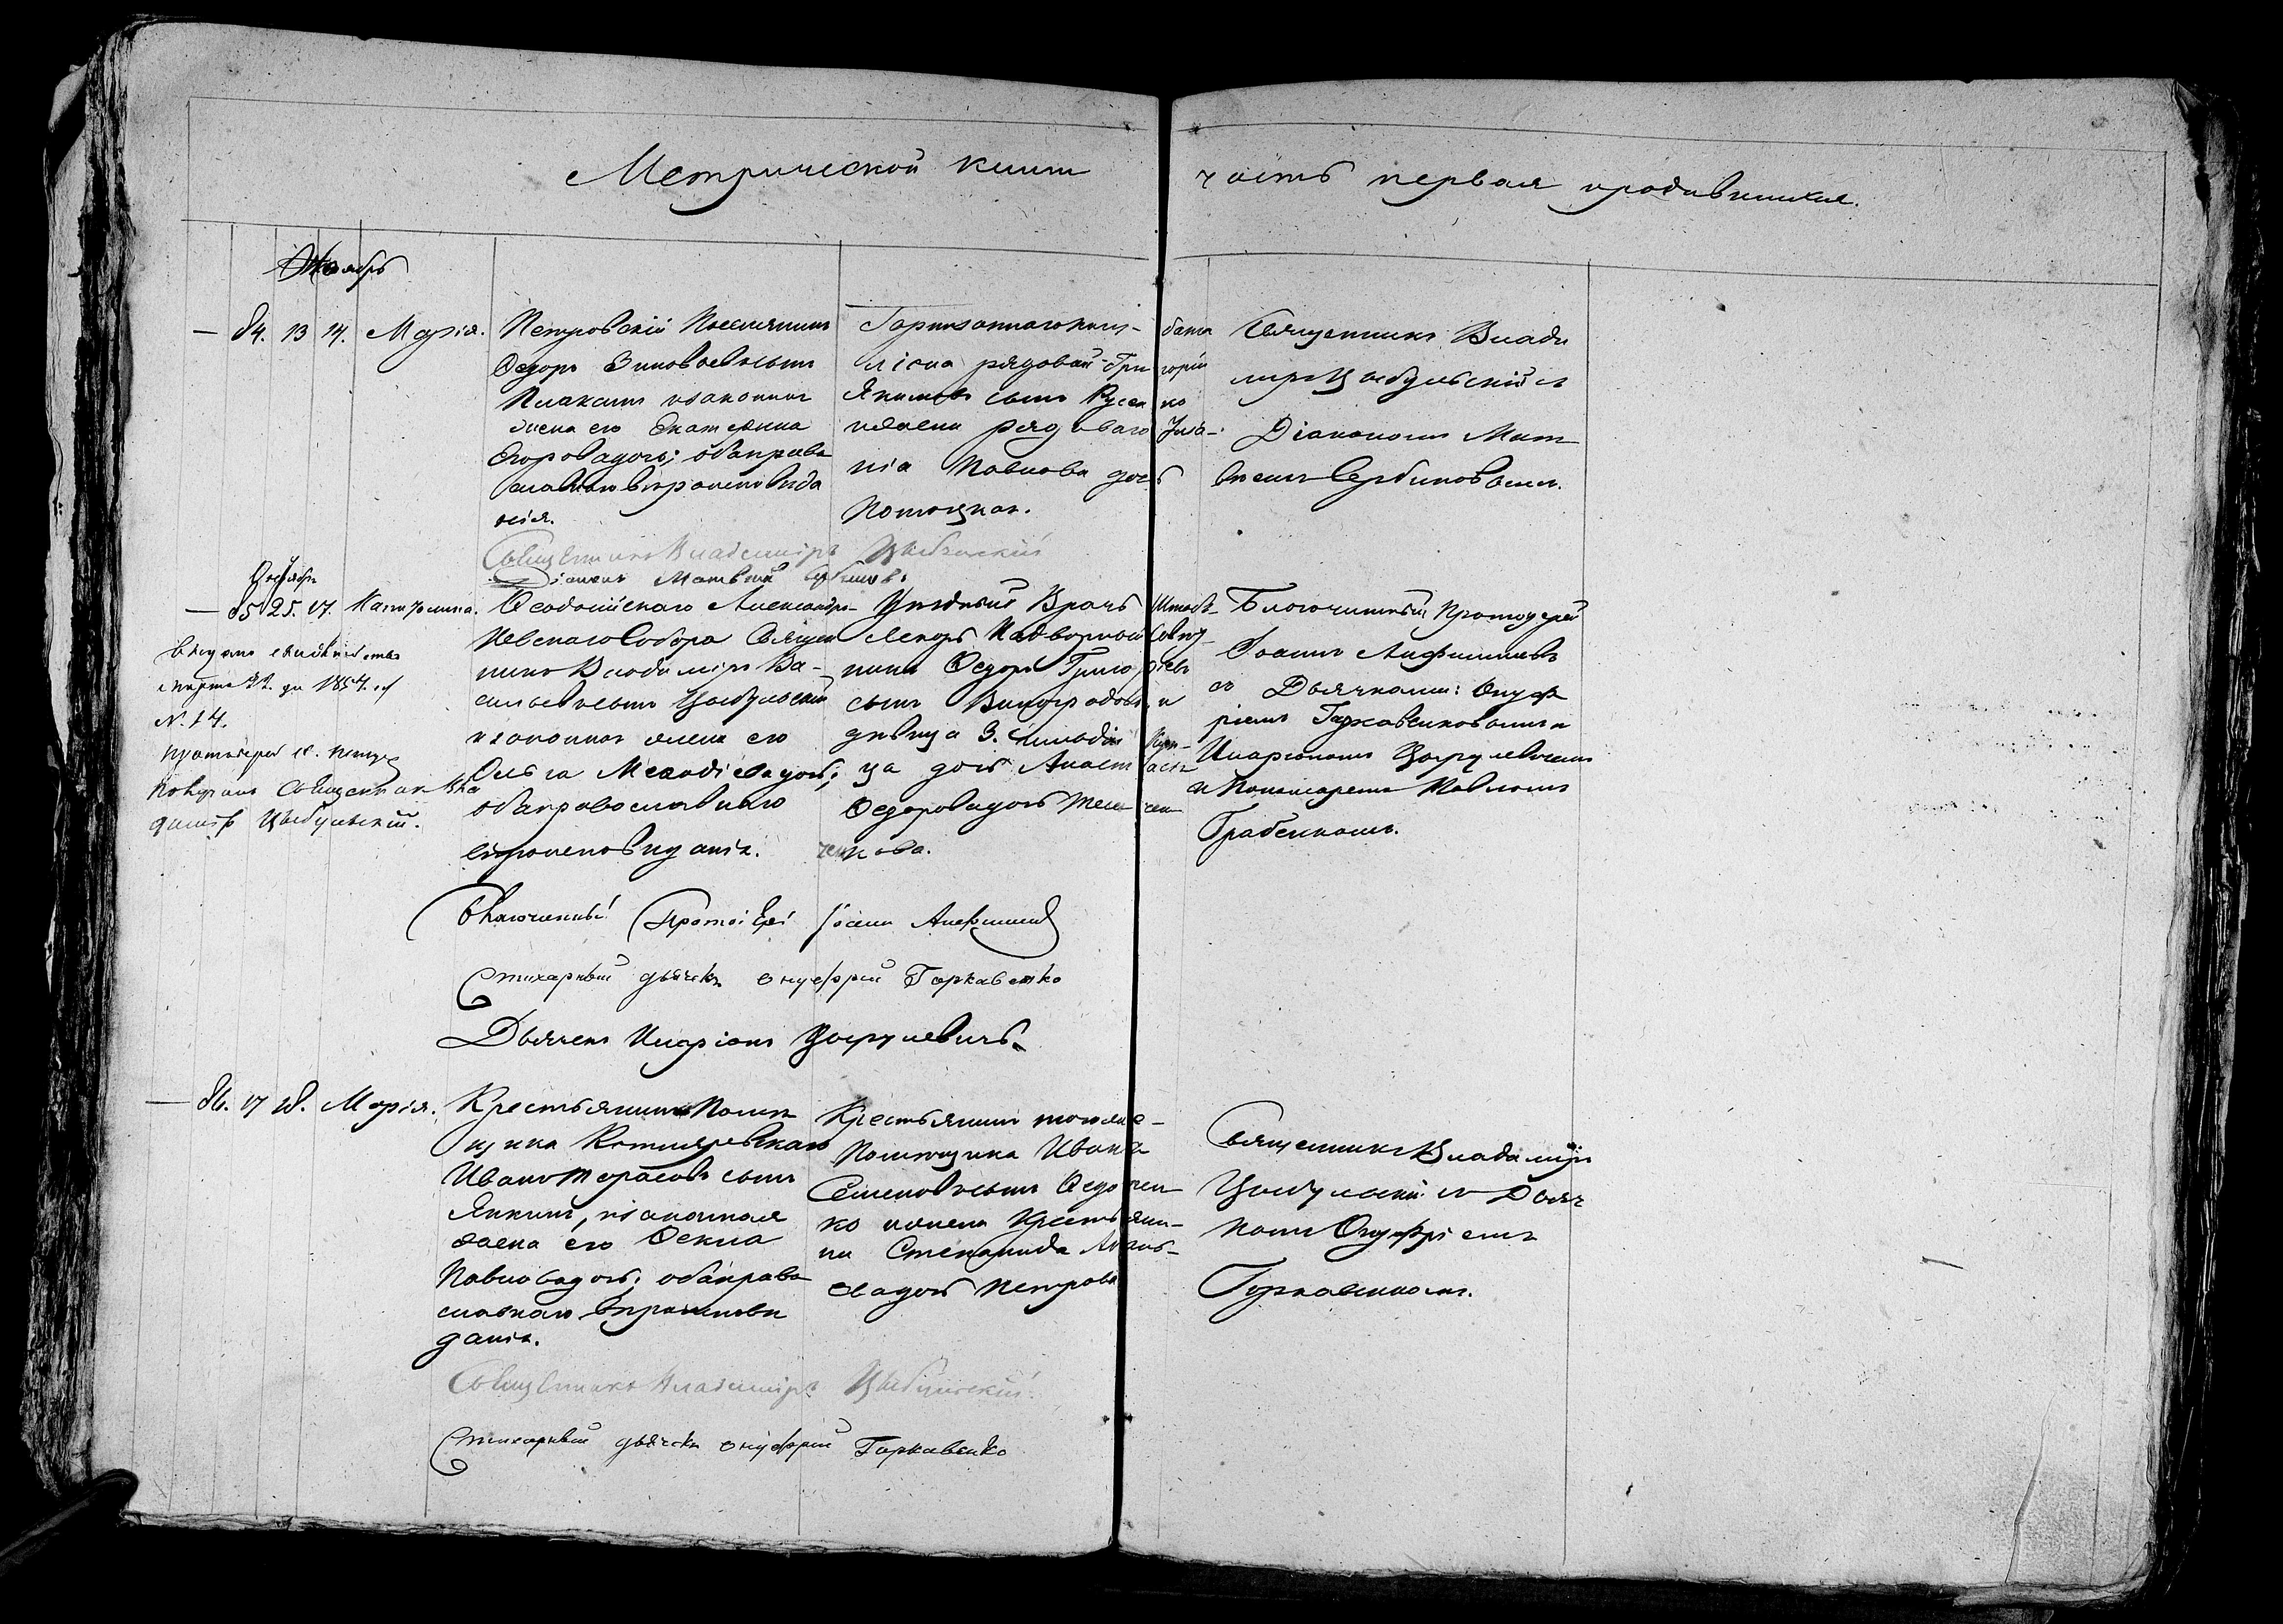 Метрической книги часть первая о родившихся.
Ноябрь
— 84. 13 14. Марія.
Петровскій Поселянинъ
Ѳедоръ Зиновьевъ сынъ
Плаксинъ и законная
жена его Екатерина
Егорова дочь; оба право
славнаго вѣроисповѣда
нія.
Гарнизоннаго бата
ліона рядовой Григорій
Якимовъ сынъ Русенко
и жена рядоваго Улья-
нія Павлова дочь
Потоцкая.
Священникъ Влади
міръ Цыбульскій съ
Діакономъ Мат
вѣемъ Сербиновымъ.
Священникъ Владиміръ Цыбульскій
Діаконъ Матвѣй Сербиновъ
Октябрь
— 85 25. 17. Катерина.
Выдано свидѣтельство
марта 22. дн 1854. г
N. 14.
Протоіерей
Священника
Цыбульскій.
Ѳеодосійскаго Александро-
Невскаго Собора Священ
никъ Владиміръ Ва-
сильевъ сынъ Цыбульскій
и законная жена его
Ольга Меѳодіева дочь;
оба православнаго
вѣроисповѣданія.
Уѣздный Врачъ Штабъ-
Лекарь Надворный Совѣт-
никъ Ѳедоръ Григорьевъ
сынъ Виноградовъ и
дѣвица 3. гильдіи Куп-
ца дочь Анастасія
Ѳедорова дочь
Благочинный Протоіерей
Іоаннъ Анфимовъ
съ Дьячками: Онуф
ріемъ Гаркавенковымъ и
Иларіономъ Цыгулевичемъ
и Пономаремъ Павломъ
Грабенкомъ.
Благочинный Протоіерей Іоаннъ Анфимовъ
Стихарный дьячекъ Онуфрій Гаркавенко
Дьячекъ Иларіонъ Цыгулевичъ.
— 86. 17 18. Марія.
Крестьянинъ Помѣ
щика Котляревскаго
Иванъ Тарасовъ сынъ
Якимъ, и законная
жена его Ѳекла
Павлова дочь; оба право
славнаго вѣроисповѣ
данія.
Крестьянинъ тогоже-
Помѣщика Иванъ
Семеновъ сынъ Ѳедорен
ко и жена Крестьяни-
на Степанида
ова дочь Петрова
Священникъ Владиміръ
Цыбульскій съ Дьяч
комъ Онуфріемъ
Гаркавенкомъ.
Священникъ Владиміръ Цыбульскій.
Стихарный дьячекъ Онуфрій Гаркавенко